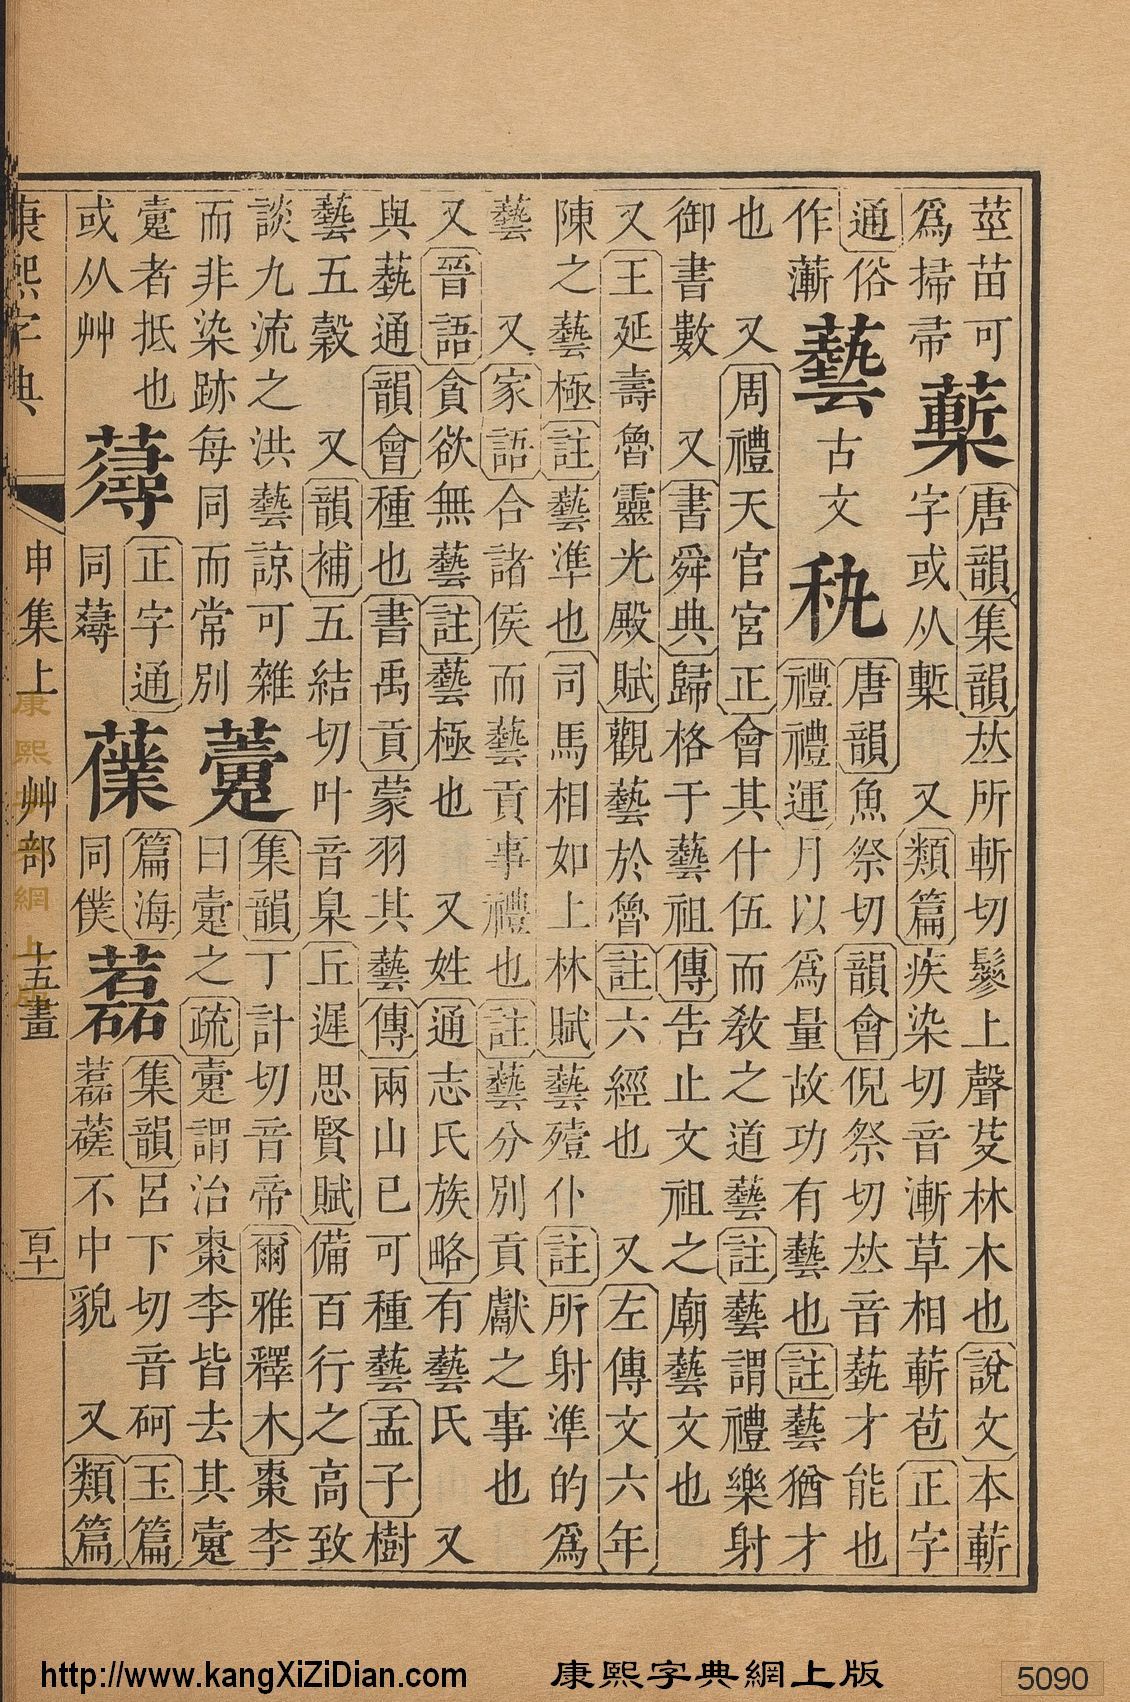 莖苗可
爲掃帚
藄
唐韻集韻𠀤所斬切鬖上聲芟林木也說文本蔪
字或从槧 又類篇疾染切音漸草相蔪苞正字
通俗
作蔪
藝
古文
秇
唐韻魚祭切韻會倪祭切𠀤音蓺才能也
禮禮運月以爲量故功有藝也註藝猶才
也 又周禮天官宮正會其什伍而敎之道藝註藝謂禮樂射
御書數 又書舜典歸格于藝祖傳告止文祖之廟藝文也
又王延壽魯靈光殿賦觀藝於魯註六經也 又左傳文六年
陳之藝極註藝準也司馬相如上林賦藝殪仆註所射準的爲
藝 又家語合諸侯而藝貢事禮也註藝分別貢獻之事也
又晉語貪欲無藝註藝極也 又姓通志氏族略有藝氏 又
與蓺通韻會種也書禹貢蒙羽其藝傳兩山已可種藝孟子樹
藝五穀 又韻補五結切叶音臬丘遲思賢賦備百行之高致
談九流之洪藝諒可雜
而非染跡每同而常別
藆
集韻丁計切音帝爾雅釋木棗李
曰疐之疏疐謂治棗李皆去其疐
疐者抵也
或从艸
蕁
正字通
同蕁
䔻
篇海
同僕
藞
集韻呂下切音砢玉篇
藞䕢不中貌 又類篇
康熙字典
申集上
艸部
十五畫
百十
康熙字典網上版
http://www.kangXiZiDian.com
康熙字典網上版
5090